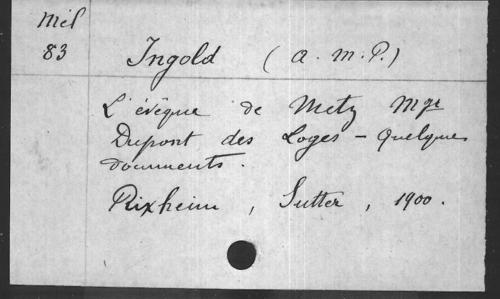 Mél
83
Ingold (A. M. P.)
L'évêque de Metz Mgr
Dupont des Loges - Quelques
documents.
Rixheim, Sutter, 1900.